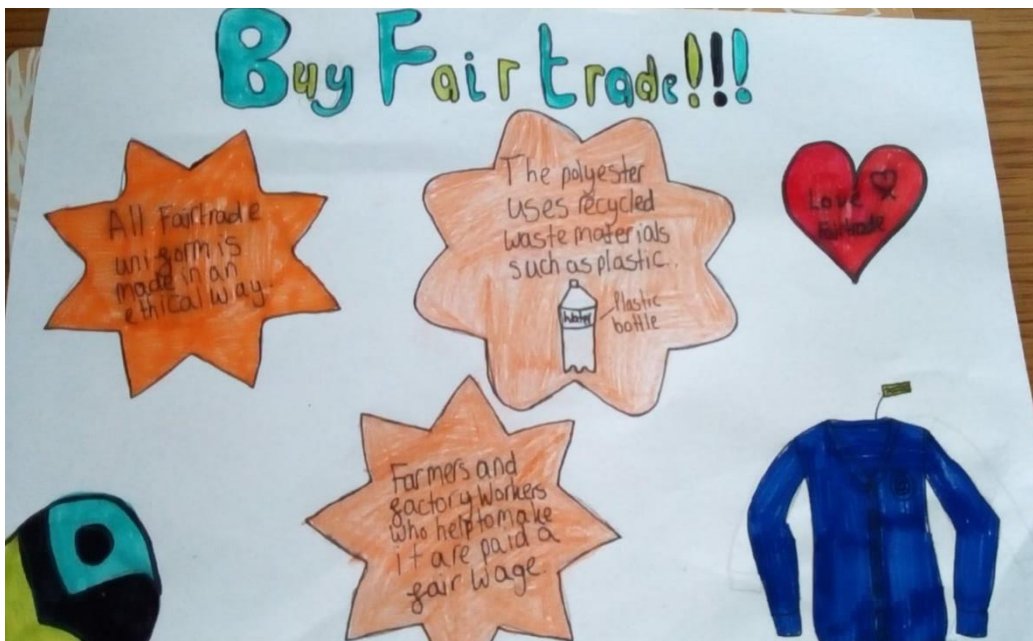 Buy Fairtrade!!!
All Fairtrade
uniform is
made in an
ethical way.
The polyester
uses recycled
waste materials
such as plastic.
Water
Plastic
bottle
Love
Fairtrade
Farmers and
factory workers
who help to make
it are paid a
fair wage.